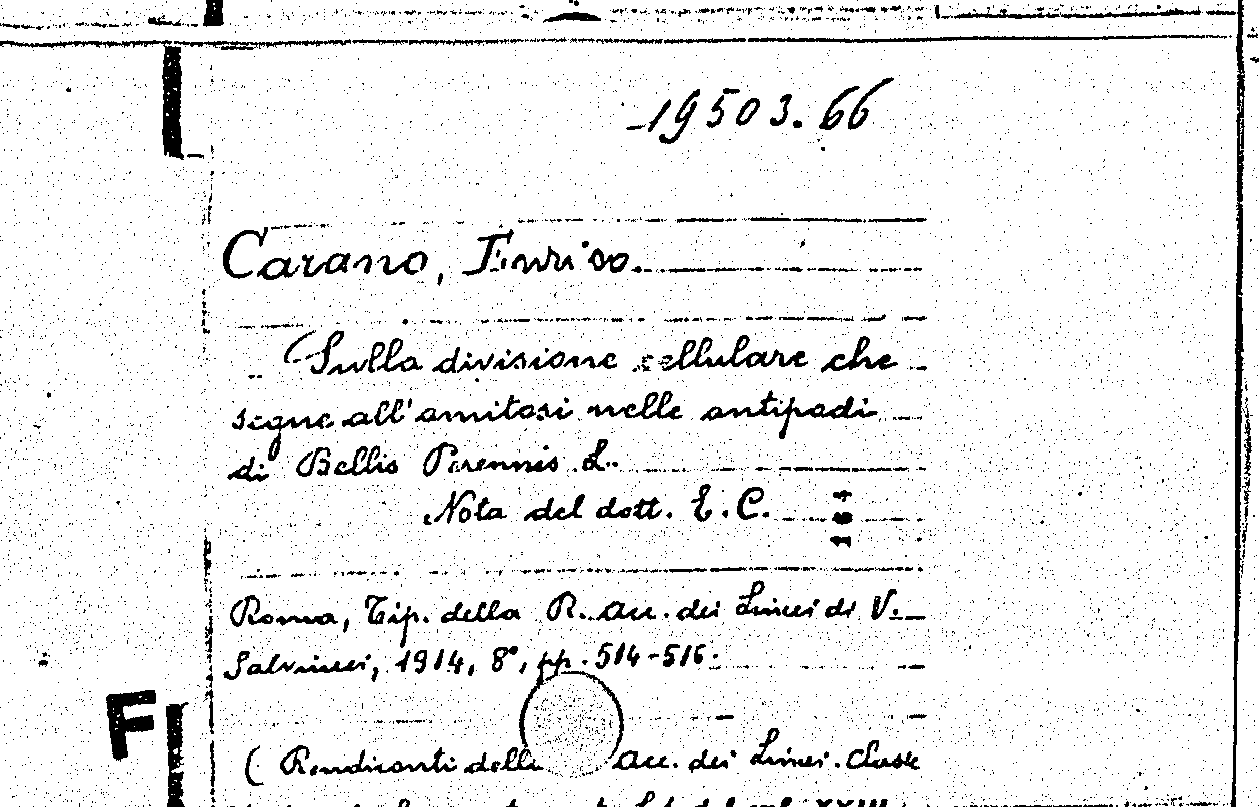 19503.66
Carano, Enrico.
Sulla divisione cellulare che
segue all'amitosi nelle antipodi
di Bellis Perennis L.
Nota del dott. E. C.
164
Roma, Tip. della R. Acc. dei Lincei di V.
Salviucci, 1914, 8°, pp. 514-516.
F
( Rendiconti della Acc. dei Lincei. Classe
vol. XXIII